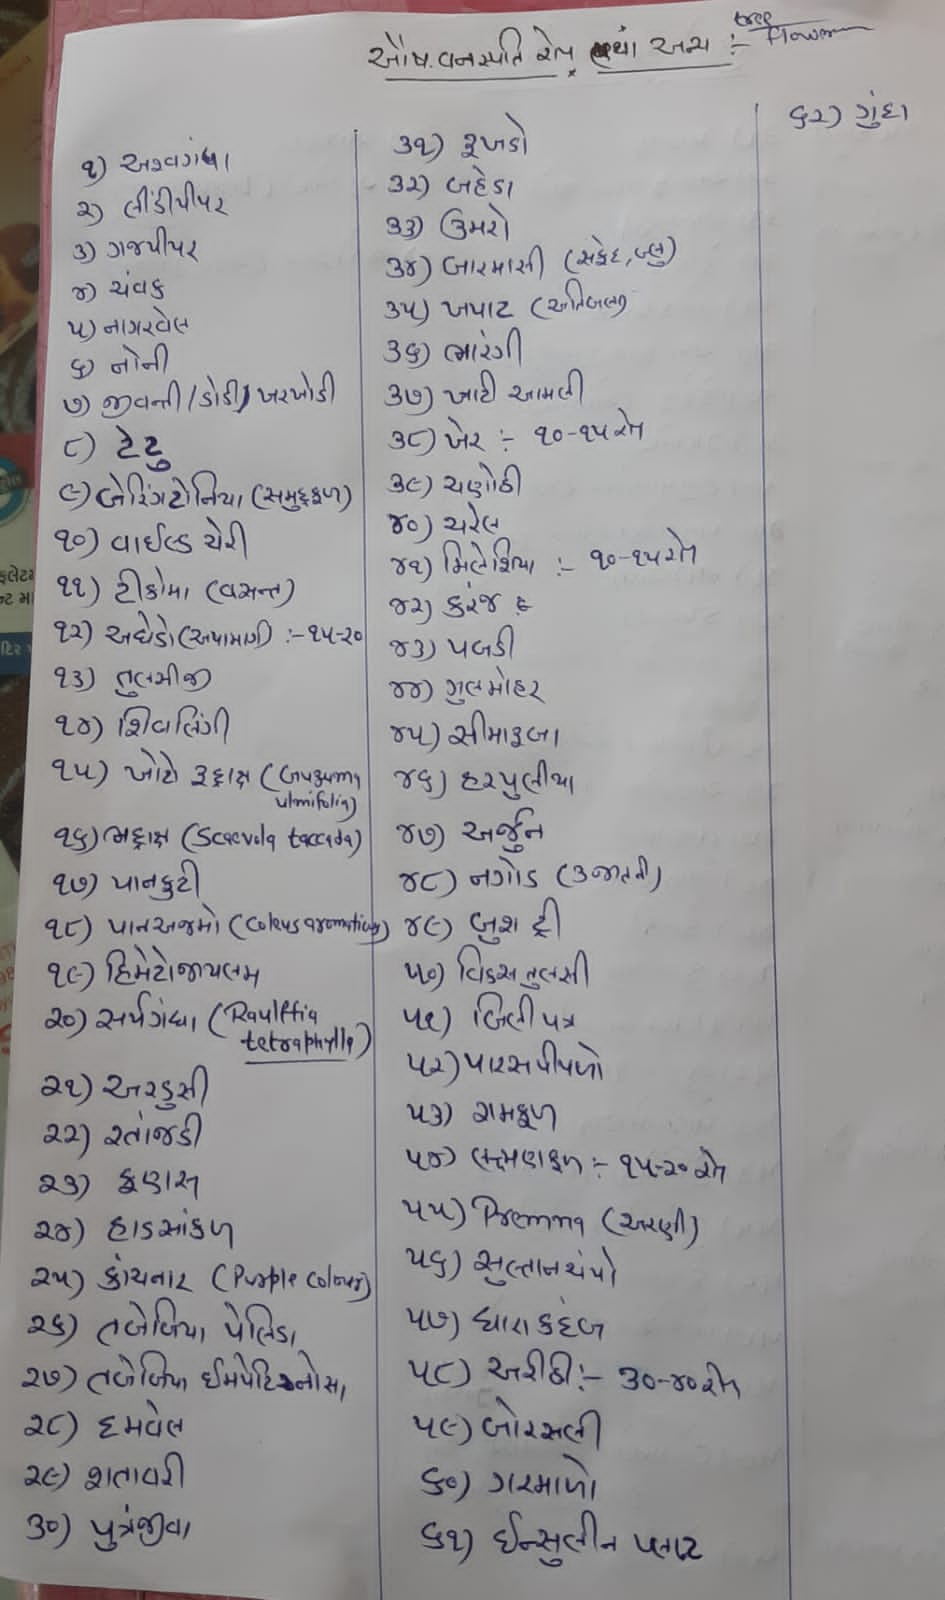 ઔષ. વનસ્પતિ રોપ તથા અન્ય :-
૧) અશ્વગંધા
૨) લીંડીપીપર
૩) ગજપીપર
૪) ચંવક
૫) નાગરવેલ
૬) નોની
૭) જીવન્તી/ડોડી/ખરખોડી
૮) ટેટુ
૯) બેરિંગટોનિયા (સમુદ્રફળ)
૧૦) વાઈલ્ડ ચેરી
૧૧) ટીકોમા (વસન્ત)
૧૨) અઘેડો (અપામાર્ગ) :- ૧૫-૨૦
૧૩) તુલસીજી
૧૪) શિવલિંગી
૧૫) ખોટો રૂદ્રાક્ષ (Guazuma
ulmifolia)
૧૬) ભદ્રાક્ષ (Scaevola taccada)
૧૭) પાનફુટી
૧૮) પાનઅજમો (Coleus aromaticus)
૧૯) હિમેટોજાયલમ
૨૦) સર્પગંધા (Raulffia
tetraphylla)
૨૧) અરડુસી
૨૨) રતાંજડી
૨૩) ફણસ
૨૪) હાડસાંકળ
૨૫) કાંચનાર (Purple colour)
૨૬) તબેબિયા પેલિડા
૨૭) તબેબિયા ઈમ્પેટિજીનોસા
૨૮) દમવેલ
૨૯) શતાવરી
૩૦) પુત્રંજીવા
૩૧) રૂખડો
૩૨) બહેડા
૩૩) ઉમરો
૩૪) બારમાસી (સફેદ, બ્લુ)
૩૫) ખપાટ (અતિબલા)
૩૬) ભારંગી
૩૭) ખાટી આમલી
૩૮) ખેર :- ૧૦-૧૫ રોપ
૩૯) ચણોઠી
૪૦) ચરેલ
૪૧) મિલેશિયા :- ૧૦-૧૫ રોપ
૪૨) કરંજ
૪૩) પબડી
૪૪) ગુલમોહર
૪૫) સીમારૂબા
૪૬) હરપુલીયા
૪૭) અર્જુન
૪૮) નગોડ (૩ જાતની)
૪૯) બુશ ટ્રી
૫૦) વિકસ તુલસી
૫૧) બિલીપત્ર
૫૨) પારસપીપળો
૫૩) રામફળ
૫૪) લક્ષ્મણફળ :- ૧૫-૨૦ રોપ
૫૫) Premna (અરણી)
૫૬) સુલ્તાનચંપો
૫૭) ધારાકદંબ
૫૮) અરીઠી :- ૩૦-૪૦ રોપ
૫૯) બોરસલી
૬૦) ગરમાળો
૬૧) ઈન્સુલીન પ્લાન્ટ
૬૨) ગુંદા